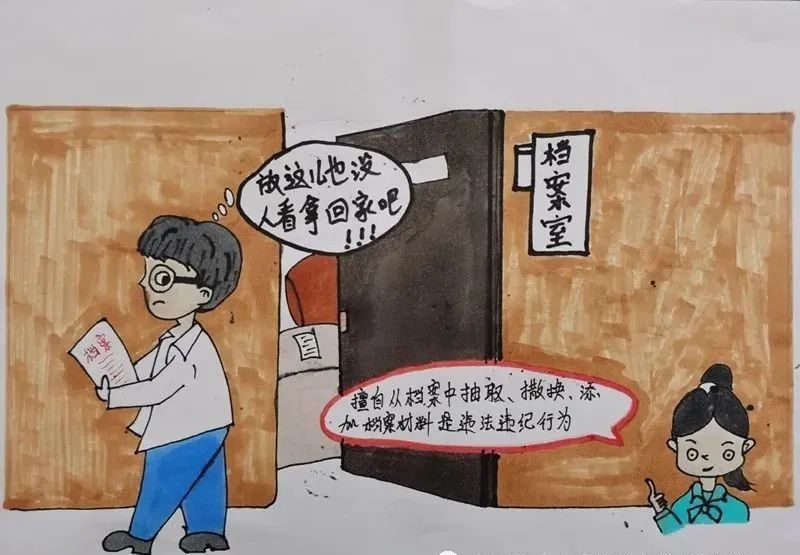 放这儿也没
人看拿回家吧
!!!
档案室
档案
擅自从档案中抽取、撤换、添
加档案材料是违法违纪行为